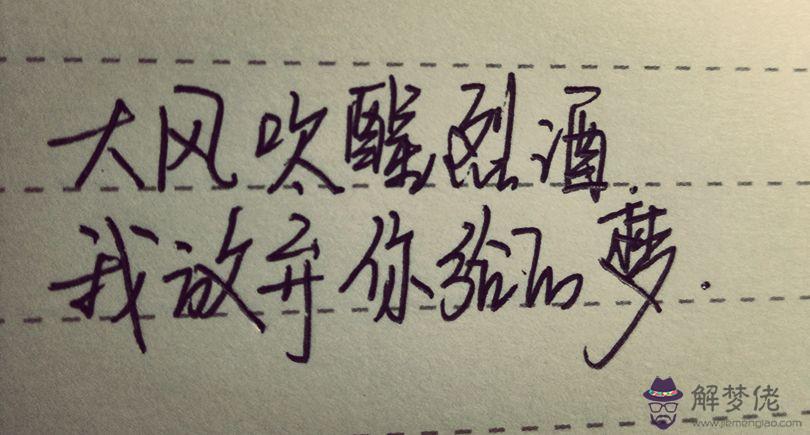 大风吹醒烈酒.
我放弃你给的梦.
解梦佬
www.jiemenglao.com